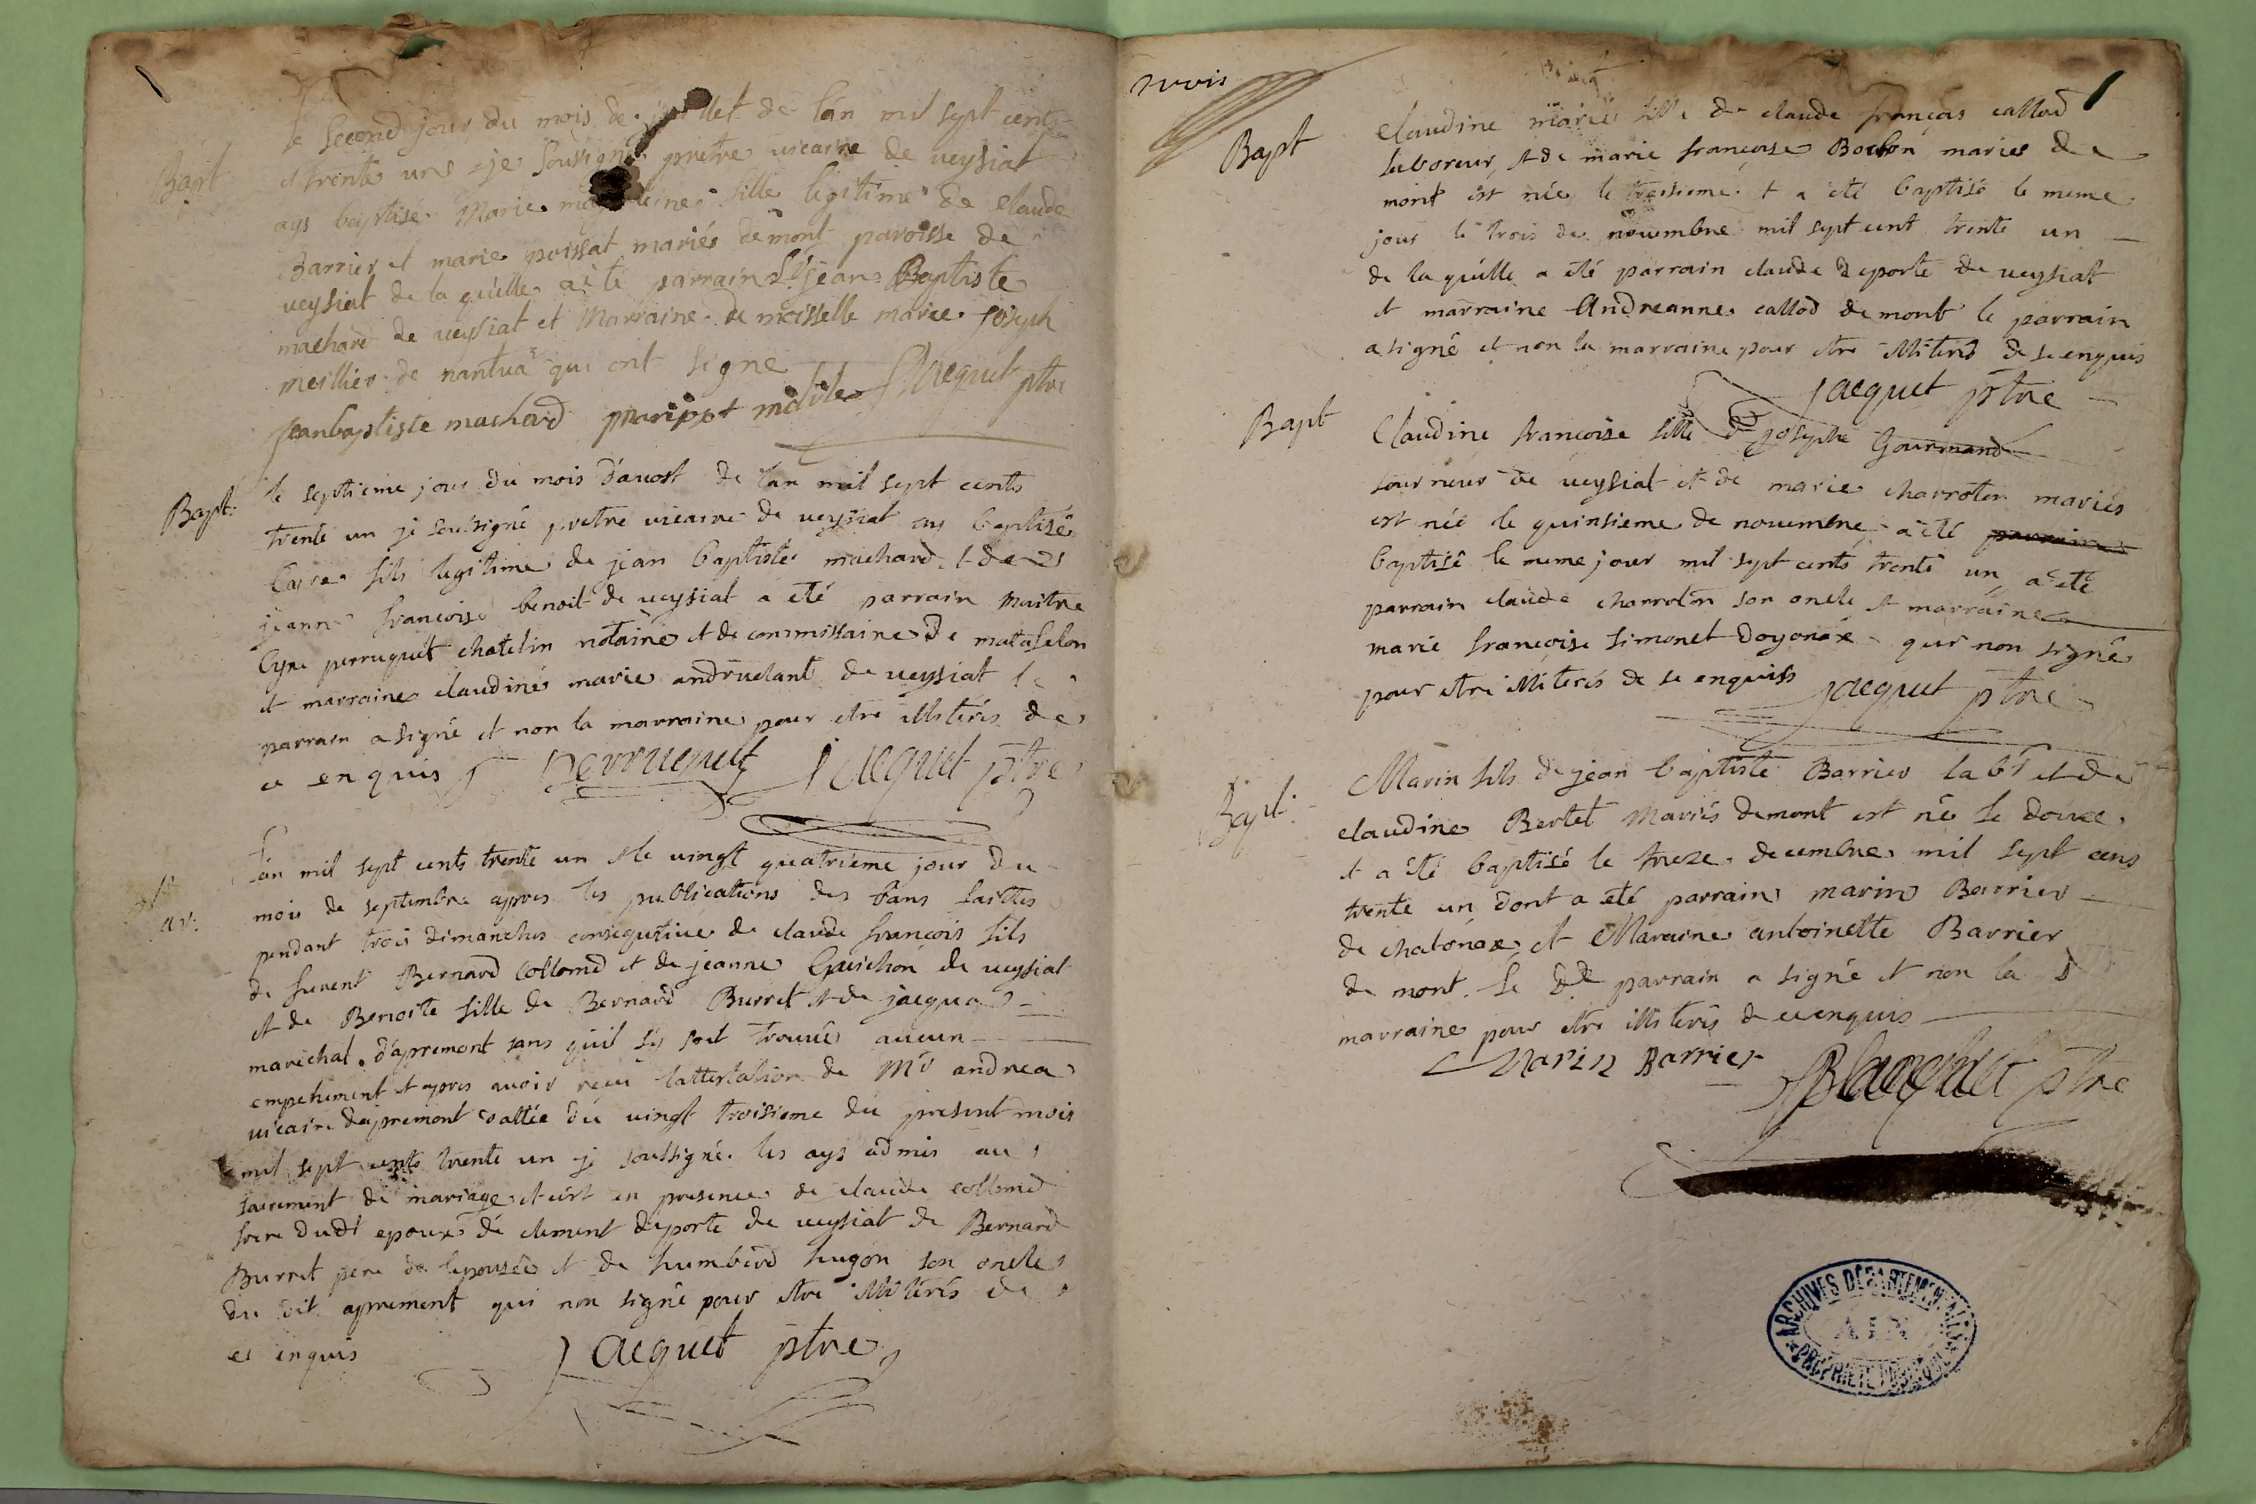 Bapt
le second jour du mois de juillet de lan mil sept cents
et trente une je sousigné pretre vicaire de veysiat
ays baptisé Marie magdeleine fille legitime de claude
Barrier et marie poissat mariés de mont paroisse de
veysiat de la quelle a été parrain Sr jean Baptiste
machard de veysiat et Marraine demoisselle marie joseph
meillier de nantua qui ont signe
jeanbaptiste machard Jacquet ptre
Bapt:
le septieme jour du mois d'auost de lan mil sept cents
trente un je sousigné pretre vicaire de veysiat ay baptisé
fils legitime de jean baptiste machard et de
jeanne françoise benoit de veysiat a été parrain maitre
perruquet chatelin notaire et de commissaire de mataselon
et marraine claudine marie andruetant de veysiat le
parrain a signé et non la marraine pour etre illiterés de
ce enquis Perruquet Jacquet ptre
ar:
lan mil sept cents trente un et le vingt quatrieme jour du
mois de septembre apres les publications des bans faittes
pendant trois dimanches consequtive de claude françois fils
de fuent Bernard Collomd et de jeanne Guichon de veysiat
et de Benoite fille de Bernard Burret et de jacqua
marechal d'apremont sans quil sy soit trouvé aucun
empechement et apres avoir recu lattestation de Mr andrea
vicaire dapremont dattée du vingt troisieme du present mois
mil sept cents trente un je soussigné les ays admis au
sacrement de mariage et cest en presence de claude collomd
frere dudt epoux de clement deporte de veysiat de Bernard
Burret pere de lepousée et de humberd hugon son oncle
du dit apremont qui non signé pour etre illiterés de
ce enquis Jacquet ptre
Bapt
Claudine marie fille de claude françois callod
laboreur et de marie françoise Bochon mariés de
mont est née le troisieme et a été baptisé le meme
jour le trois de novembre mil sept cent trente un
de la quelle a été parrain claude deporte de veysiat
et marraine Andreanne callod de mont le parrain
a signé et non la marraine pour etre illiterés de se enquis
Jacquet ptre
Bapt
Claudine françoise fille de joseph Gourmand
tourneur de veysiat et de marie charroton mariés
est née le quinsieme de novembre a été parrain
baptisé le meme jour mil sept cents trente un a été
parrain claude charroton son oncle et marraine
marie françoise simonet doyonax qui non signé
pour etre illiterés de se enquiss Jacquet ptre
Bapt:
Marin fils de jean baptiste Barrier labr et de
claudine Bertet Mariés de mont est né le douze
et a été baptisé le treze decembre mil sept cens
trente un dont a été parrain marin Barrier
de chatonax et Maraine antoinette Barrier
de mont le dt parrain a signé et non la
marraine pour etre illiterés de ce enquis
Marin Barrier
ptre
ARCHIVES DÉPARTEMENTALES
AIN
PROPRIÉTÉ PUBLIQUE